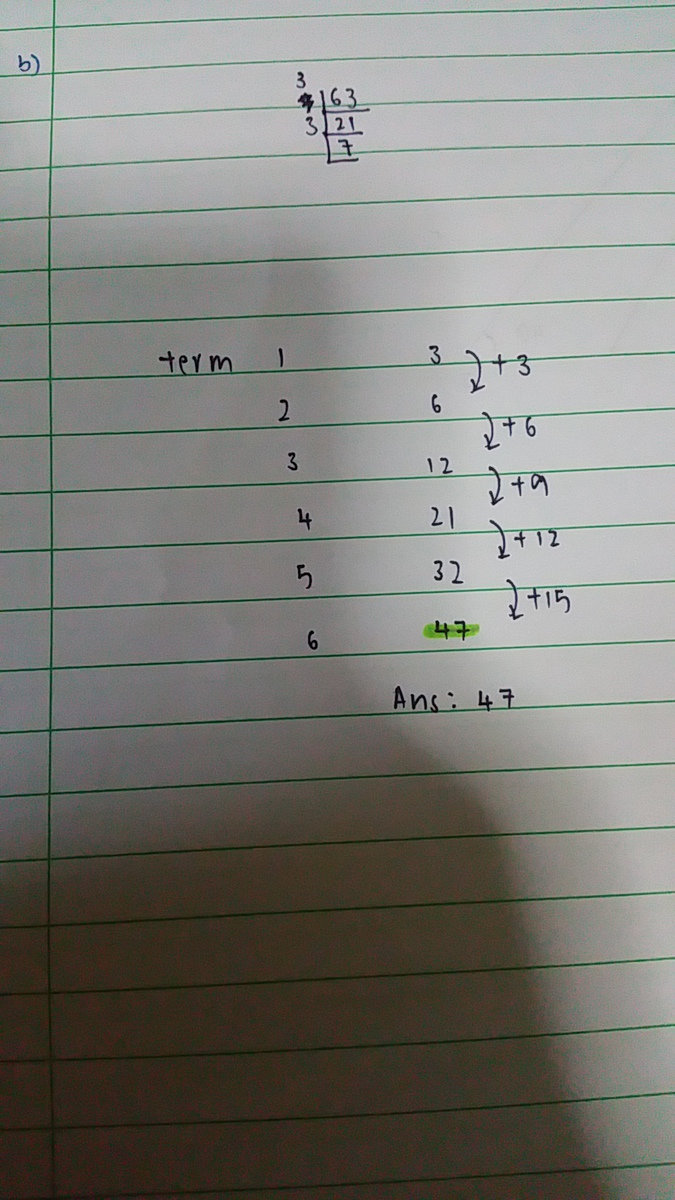 b)
3
63
3 21
7
term 1 3 +3
2 6 +6
3 12 +9
4 21 +12
5 32 +15
6 47
Ans: 47